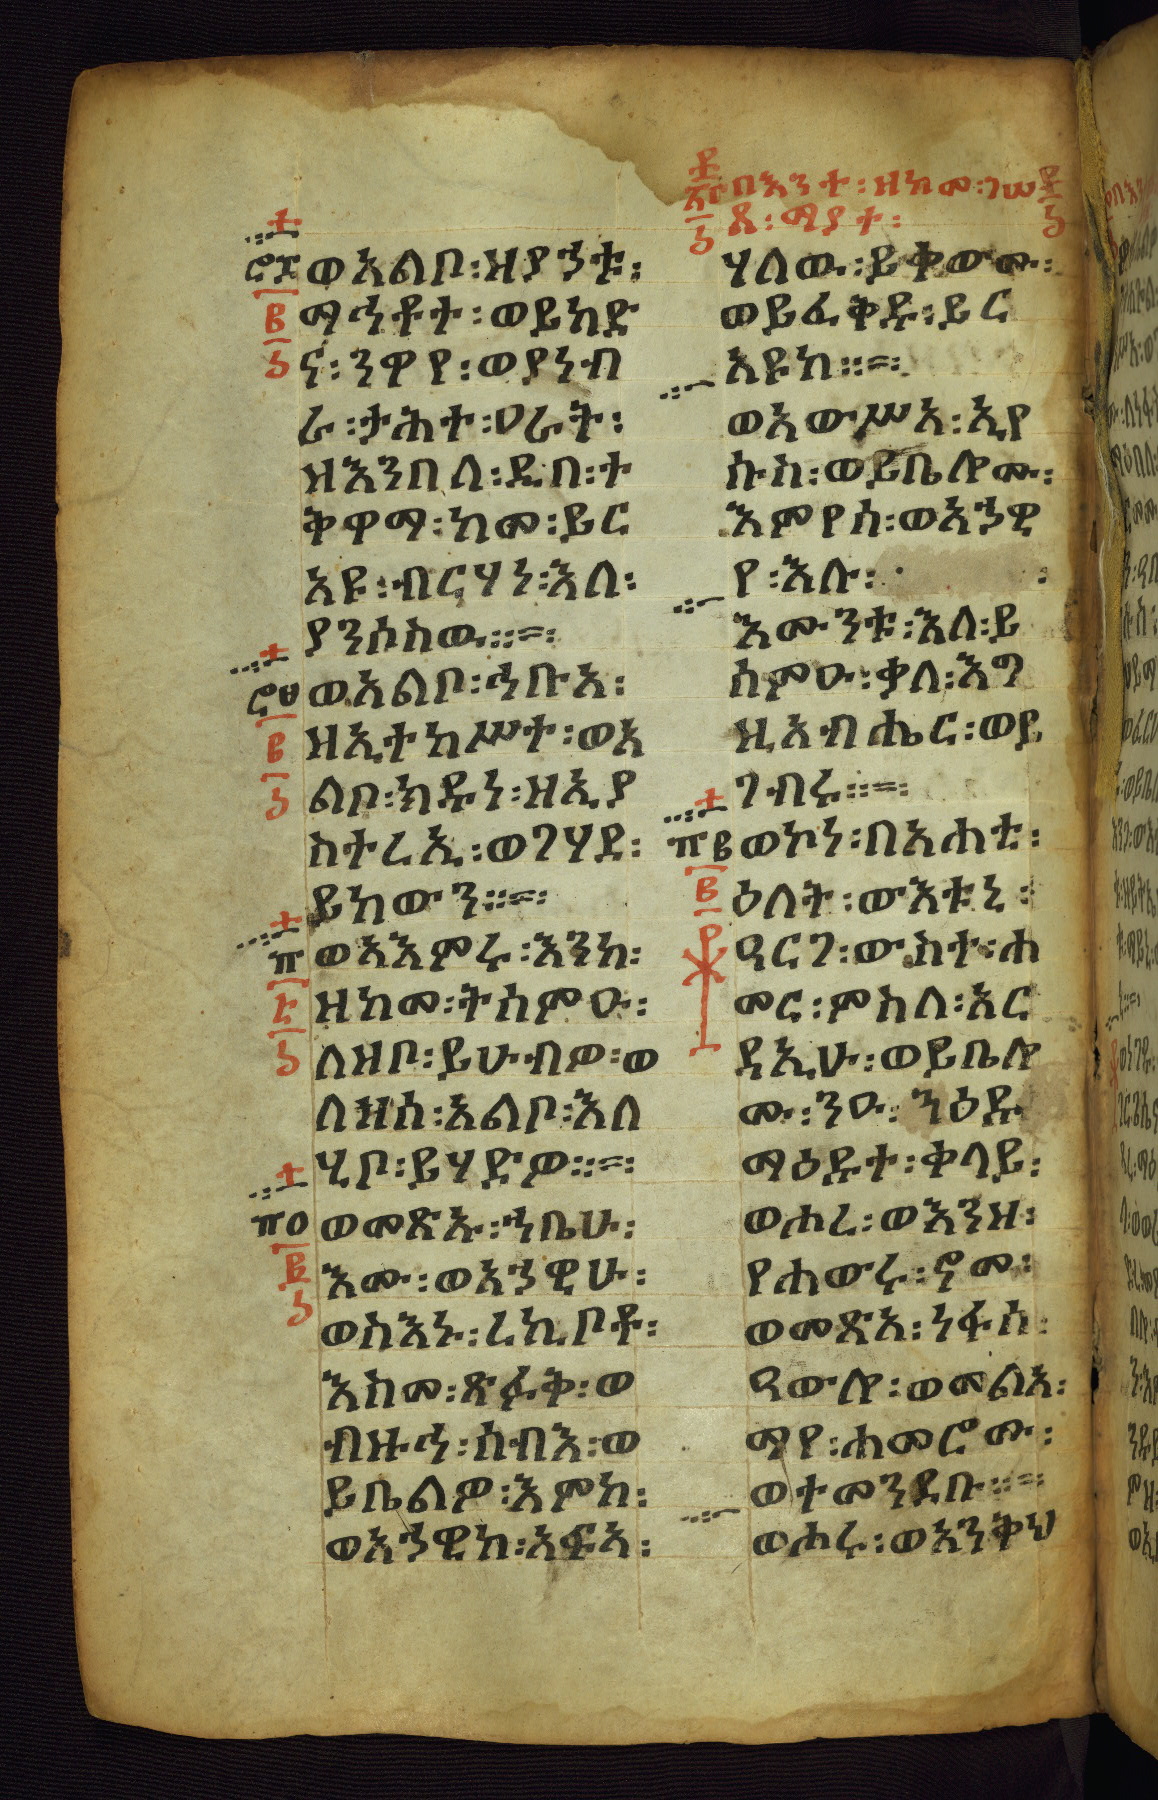 ፳
በእንተ፡ ዘከመ፡ ገሠ
ጸ፡ ማያተ፡
ወአልቦ፡ ዘያኀቱ፡
ማኅቶተ፡ ወይከድ
ና፡ ንዋየ፡ ወያነብ
ራ፡ ታሕተ፡ ዐራት፡
ዘእንበለ፡ ዲበ፡ ተ
ቅዋማ፡ ከመ፡ ይር
አዩ፡ ብርሃነ፡ እለ፡
ያንሶስዉ።
ወአልቦ፡ ኅቡአ፡
ዘኢተከሥተ፡ ወአ
ልቦ፡ ክዱነ፡ ዘኢያ
ስተረኢ፡ ወገሃደ፡
ይከውን።
ወአእምሩ፡ እንከ፡
ዘከመ፡ ትሰምዑ፡
ለዘቦ፡ ይሁብዎ፡ ወ
ለዘሰ፡ አልቦ፡ እለ
ሂቦ፡ ይሃይድዎ።
ወመጽኡ፡ ኀቤሁ፡
እሙ፡ ወአኀዊሁ፡
ወስእኑ፡ ረኪቦቶ፡
እስመ፡ ጽፉቅ፡ ወ
ብዙኅ፡ ሰብእ፡ ወ
ይቤልዎ፡ እምከ፡
ወአኀዊከ፡ አፍአ፡
ሃለዉ፡ ይቀውሙ፡
ወይፈቅዱ፡ ይር
አዩከ።
ወአውሥአ፡ ኢየ
ሱስ፡ ወይቤሎሙ፡
እምየሰ፡ ወአኀዊ
የ፡ እሉ፡
እሙንቱ፡ እለ፡ ይ
ሰምዑ፡ ቃለ፡ እግ
ዚአብሔር፡ ወይ
ገብሩ።
ወኮነ፡ በአሐቲ፡
ዕለት፡ ውእቱኒ፡
ዓርገ፡ ውስተ፡ ሐ
መር፡ ምስለ፡ አር
ዳኢሁ፡ ወይቤሎ
ሙ፡ ንዑ፡ ንዕዱ
ማዕዱተ፡ ቀላይ፡
ወሐረ፡ ወእንዘ፡
የሐውሩ፡ ኖመ፡
ወመጽአ፡ ነፋስ፡
ዓውሎ፡ ወመልአ፡
ማየ፡ ሐመሮሙ፡
ወተመንደቡ።
ወሐሩ፡ ወአንቅህ